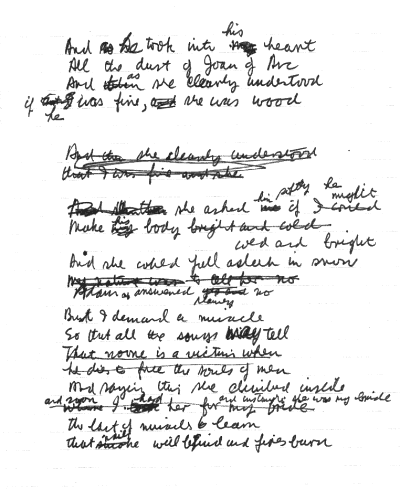 his
And he took into my heart
All the dust of Joan of Arc
And then as she clearly understood
if that I was fire, and she was wood
he
And then she clearly understood
that I was fire and she
softly he
she asked him if I might
make his body bright and cold
cold and bright
And she could fall asleep in snow
to all her no
answered no
But I demand a miracle
So that all the songs may tell
That no one is a victim when
he dies to free the souls of men
And saying this she climbed inside
and soon I had her for my bride
and instantly she was my bride
the last of miracles to learn
that will bind and fires burn